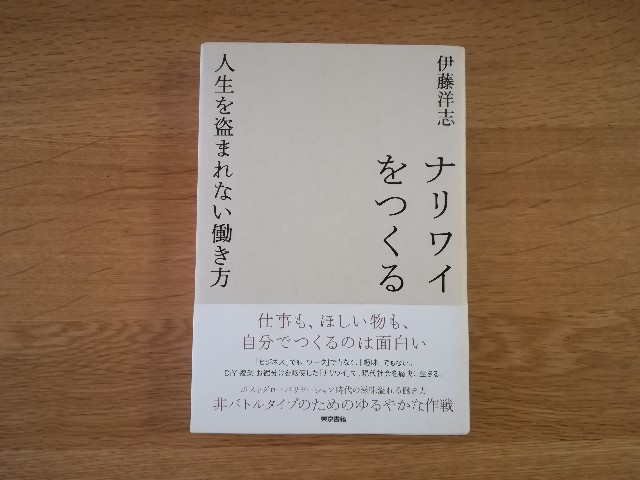 伊藤洋志
ナリワイ
をつくる
人生を盗まれない働き方
仕事も、ほしい物も、
自分でつくるのは面白い
「ビジネス」でも「ワーク」でもなく、「趣味」でもない。
DIY・複業・お裾分けを駆使した「ナリワイ」で、現代社会を痛快に生きる。
ポストグローバリゼーション時代の
非バトルタイプのためのゆるやかな作戦
東京書籍